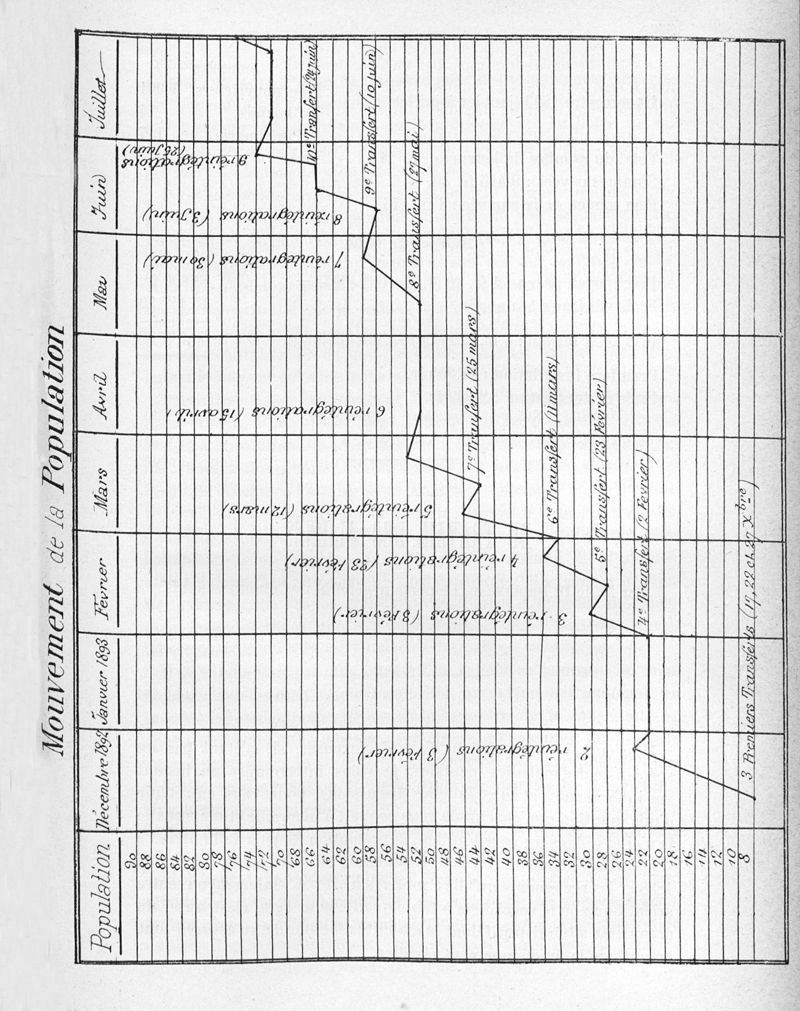 Mouvement de la Population
Population
Décembre 1892
Janvier 1893
Février
Mars
Avril
Mai
Juin
Juillet
90
88
86
84
82
80
78
76
74
72
70
68
66
64
62
60
58
56
54
52
50
48
46
44
42
40
38
36
34
32
30
28
26
24
22
20
18
16
14
12
10
8
9 réintégrations
(26 juin)
10e Tranfert (24 juin)
8 réintégrations (3 Juin)
9e Transfert (10 juin)
7 réintégrations (30 mai)
8e Transfert (27 mai)
6 réintégrations (15 avril)
7e Tranfert (25 mars)
5 réintégrations (12 mars)
6e Transfert (11 mars)
4 réintégrations (23 Février)
5e Transfert (23 Février)
3 réintégrations (8 Février)
4e Transfert (2 Février)
2 réintégrations (3 Février)
3 Premiers Transferts (17, 22 et 27 Xbre)